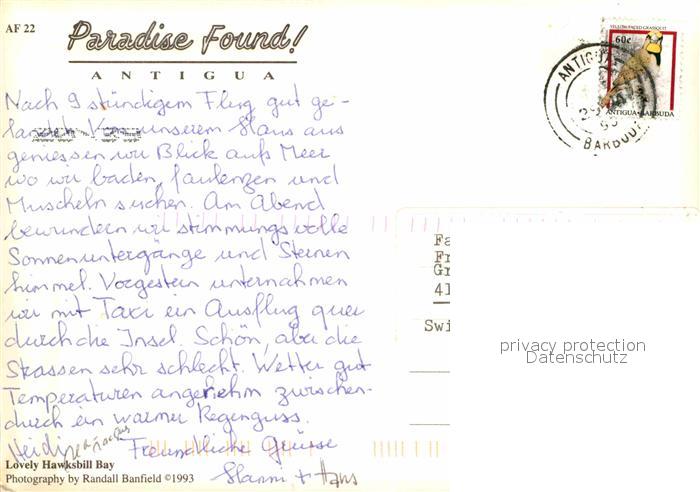 AF 22
Paradise Found!
ANTIGUA
YELLOW-FACED GRASSQUIT
60c
ANTIGUA • BARBUDA
ANTIGUA
BARBUDA
Nach 9 stündigem Flug gut ge-
landet. Von unserem Haus aus
geniessen wir Blick aufs Meer
wo wir baden, faulenzen und
Muscheln suchen. Am Abend
bewundern wir stimmungsvolle
Sonnenuntergänge und Sternen
himmel. Vorgestern unternahmen
wir mit Taxi ein Ausflug quer
durch die Insel. Schön, aber die
Strassen sehr schlecht. Wetter gut
Temperaturen angenehm zwischen-
durch ein warmer Regenguss.
Heidi
Freundliche Grüsse
Hanni + Hans
Lovely Hawksbill Bay
Photography by Randall Banfield ©1993
Fa
Fr
Gr
41
Swi
privacy protection
Datenschutz